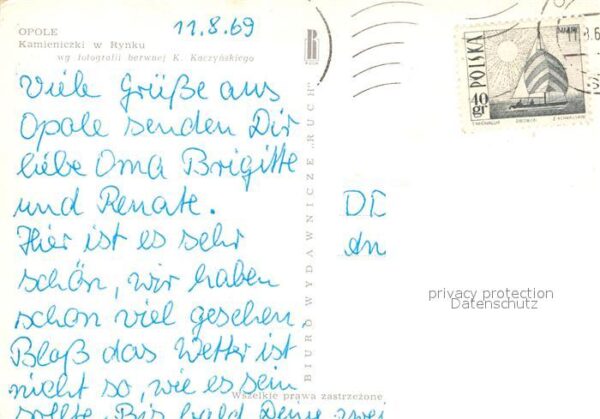 OPOLE
Kamieniczki w Rynku
wg fotografii barwnej K. Kaczyńskiego
11.8.69
Viele Grüße aus
Opole senden Dir
liebe Oma Brigitte
und Renate.
Hier ist es sehr
schön, wir haben
schon viel gesehen,
Bloß das Wetter ist
nicht so, wie es sein
sollte. Bis bald Deine zwei
BIURO WYDAWNICZE „RUCH"
Wszelkie prawa zastrzeżone
POLSKA
40 gr
DD
An
privacy protection
Datenschutz